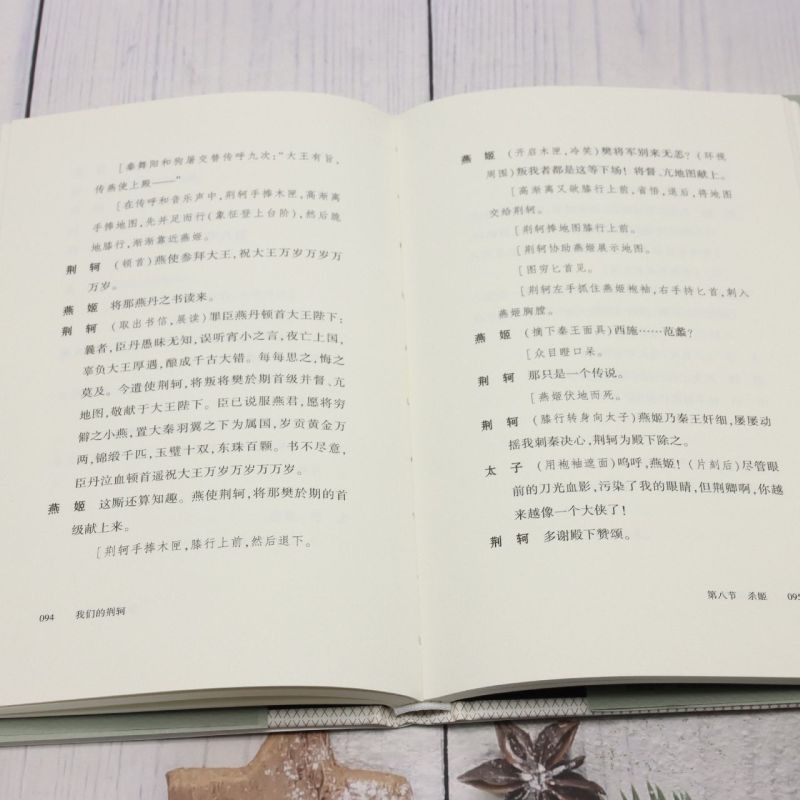 [秦舞阳和狗屠交替传呼九次：“大王有旨，
传燕使上殿——”
[在传呼和音乐声中，荆轲手捧木匣，高渐离
手捧地图，先并足而行（象征登上台阶），然后跪
地膝行，渐渐靠近燕姬。
荆　轲　（顿首）燕使参拜大王，祝大王万岁万岁万
万岁。
燕　姬　将那燕丹之书读来。
荆　轲　（取出书信，展读）罪臣燕丹顿首大王陛下；
曩者，臣丹愚昧无知，误听宵小之言，夜亡上国，
辜负大王厚遇，酿成千古大错。每每思之，悔之
莫及。今遣使荆轲，将叛将樊於期首级并督、亢
地图，敬献于大王陛下。臣已说服燕君，愿将穷
僻之小燕，置大秦羽翼之下为属国，岁贡黄金万
两，锦缎千匹，玉璧十双，东珠百颗。书不尽意，
臣丹泣血顿首遥祝大王万岁万岁万万岁。
燕　姬　这厮还算知趣。燕使荆轲，将那樊於期的首
级献上来。
[荆轲手捧木匣，膝行上前，然后退下。
094　我们的荆轲
燕　姬　（开启木匣，冷笑）樊将军别来无恙？（环视
周围）叛我者都是这等下场！将督、亢地图献上。
[高渐离又欲膝行上前，省悟，退后，将地图
交给荆轲。
[荆轲捧地图膝行上前。
[荆轲协助燕姬展示地图。
[图穷匕首见。
[荆轲左手抓住燕姬袍袖，右手持匕首，刺入
燕姬胸膛。
燕　姬　（摘下秦王面具）西施……范蠡？
[众目瞪口呆。
荆　轲　那只是一个传说。
[燕姬伏地而死。
荆　轲　（膝行转身向太子）燕姬乃秦王奸细，屡屡动
摇我刺秦决心，荆轲为殿下除之。
太　子　（用袍袖遮面）呜呼，燕姬！（片刻后）尽管眼
前的刀光血影，污染了我的眼睛，但荆卿啊，你越
来越像一个大侠了！
荆　轲　多谢殿下赞颂。
第八节　杀姬　095